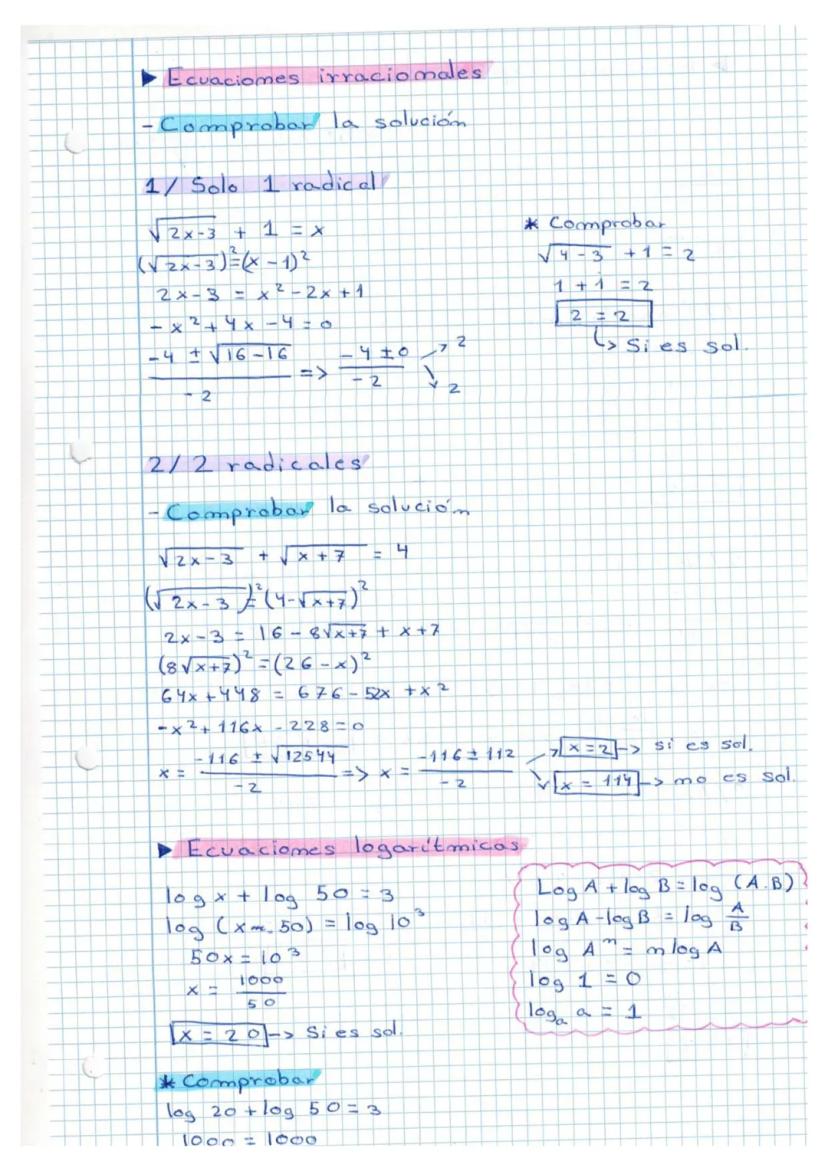 ▶ Ecuaciones irracionales
- Comprobar la solución
1/ Solo 1 radical
√2x-3 + 1 = x
(√2x-3)²=(x-1)²
2x-3 = x²-2x+1
-x²+4x-4=0
-4 ± √16-16 / -2 => -4±0 / -2 ↗ 2 ↘ 2
* Comprobar
√4-3 +1 = 2
1 + 1 = 2
2 = 2
↳ Si es sol.
2/ 2 radicales
- Comprobar la solución
√2x-3 + √x+7 = 4
(√2x-3)²=(4-√x+7)²
2x-3 = 16-8√x+7 + x+7
(8√x+7)²=(26-x)²
64x+448 = 676-52x+x²
-x²+116x-228=0
x = -116 ± √12544 / -2 => x = -116±112 / -2 ↗ x=2 -> si es sol.
↘ x = 114 -> no es sol.
▶ Ecuaciones logarítmicas
log x + log 50 = 3
log (x . 50) = log 10³
50x = 10³
x = 1000 / 50
x = 20 -> Si es sol.
Log A + log B = log (A.B)
log A - log B = log A/B
log Aⁿ = n log A
log 1 = 0
logₐ a = 1
* Comprobar
log 20 + log 50 = 3
1000 = 1000